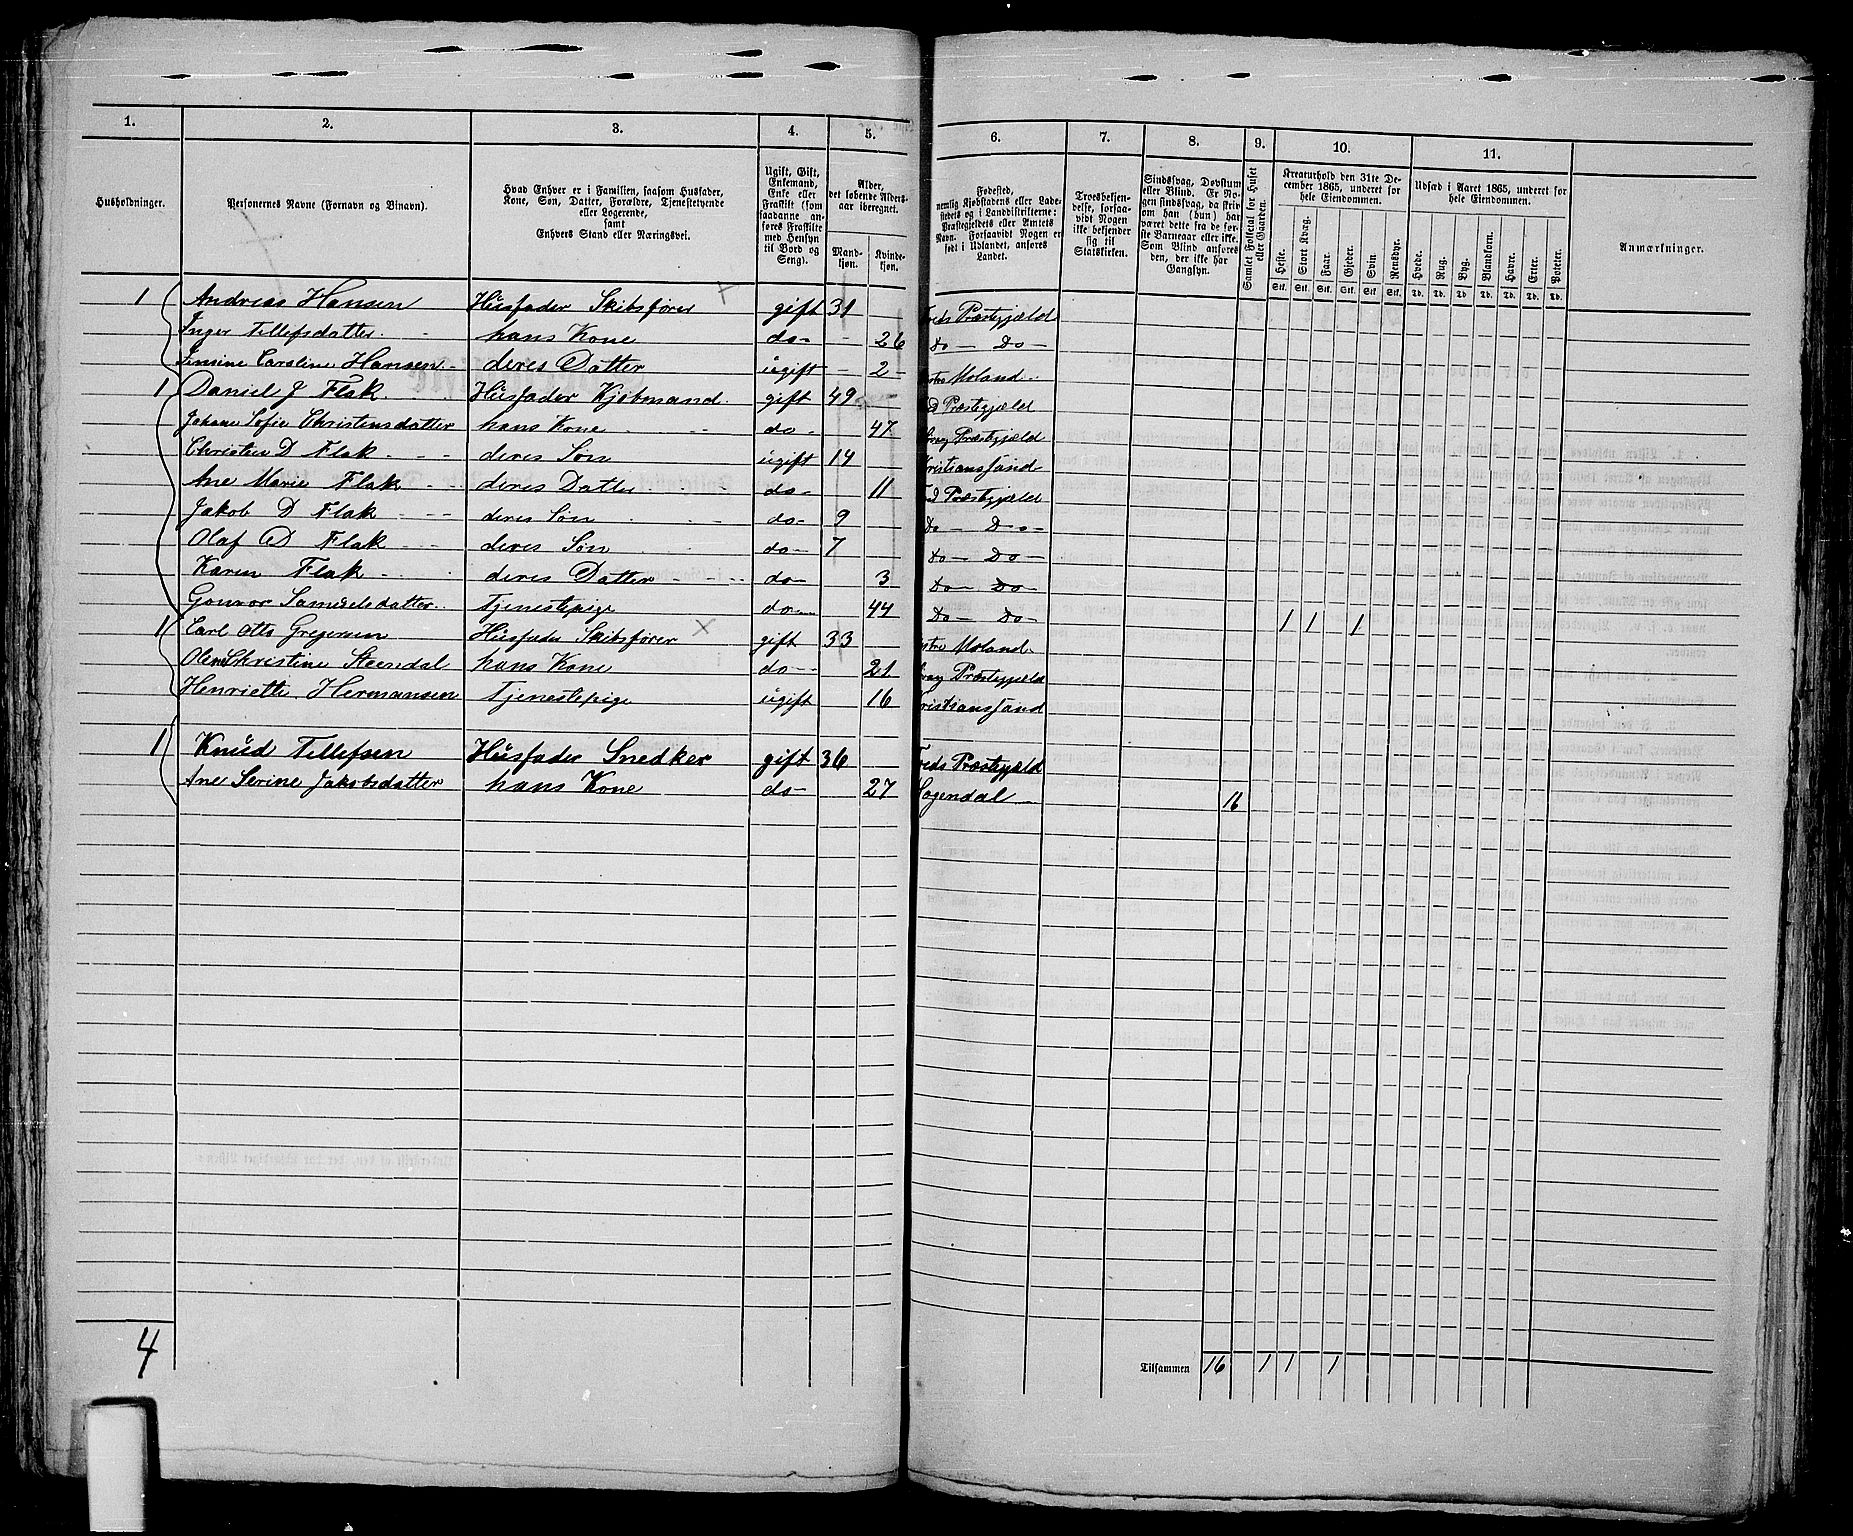 1. 2. 3. 4. 5. 6. 7. 8. 9. 10. 11.
Husholdninger.
Personernes Navne (Fornavn og Binavn).
Hvad Enhver er i Familien, saasom Husfader,
Kone, Søn, Datter, Forældre, Tjenestetyende
eller Logerende,
samt
Enhvers Stand eller Næringsvei.
Ugift, Gift,
Enkemand,
Enke eller
Fraskilt (som
saadanne an-
føres Fraskilte
med Hensyn
til Bord og
Seng).
Alder,
det løbende Alders-
aar iberegnet.
Mand-
kjøn.
Kvinde-
kjøn.
Fødested,
nemlig Kjøbstadens eller Lade-
stedets og i Landdistrikterne:
Præstegjeldets eller Amtets
Navn. Forsaavidt Nogen er
født i Udlandet, anføres
Landet.
Troesbekjen-
delse, forsaa-
vidt Nogen
ikke bekjender
sig til
Statskirken.
Sindssvag, Døvstum
eller Blind. Er No-
gen sindssvag, da skriv
om han (hun) har
været dette fra de før-
ste Barneaar eller ikke.
Som Blind anføres
den, der ikke har
Gangsyn.
Samlet Folketal for Huset
eller Gaarden.
Kreaturhold den 31te De-
cember 1865, underet for
hele Eiendommen.
Heste. Stort Kvæg. Faar. Gjeder. Svin. Rensdyr.
Stk. Stk. Stk. Stk. Stk. Stk.
Udsæd i Aaret 1865, underet for
hele Eiendommen.
Hvede. Rug. Byg. Blandkorn. Havre. Erter. Poteter.
Td. Td. Td. Td. Td. Td. Td.
Anmærkninger.
1 Andreas Hansen Husfader Skibsfører gift 31 Præstegjæld
Inger Tellefsdatter hans Kone do- 26 Do- Do-
Caroline Hansen deres Datter ugift 2 Moland
1 Daniel J Flak Husfader Kjøbmand gift 49 Præstegjæld
Johane Sofie Christensdatter hans Kone do- 47 Præstegjæld
Christen D Flak deres Søn ugift 14 Kristianssand
Ane Marie Flak deres Datter do- 11 Præstegjæld
Jakob D Flak deres Søn do- 9 Do- Do-
Olaf D Flak deres Søn do- 7 Do- Do-
Karen Flak deres Datter do- 3 Do- Do-
Gonvor Samuelsdatter Tjenestepige do- 44 Do- Do- 1 1 1
1 Carl Otto Gregersen Husfader Skibsfører gift 33 Moland
Christine Steendal hans Kone do- 21 Præstegjæld
Henriette Hermansen Tjenestepige ugift 16 Kristianssand
1 Knud Tellefsen Husfader Snedker gift 36 Præstegjæld
Ane Serine Jakobsdatter hans Kone do- 27 Sogendal 16
4
Tilsammen 16 1 1 1